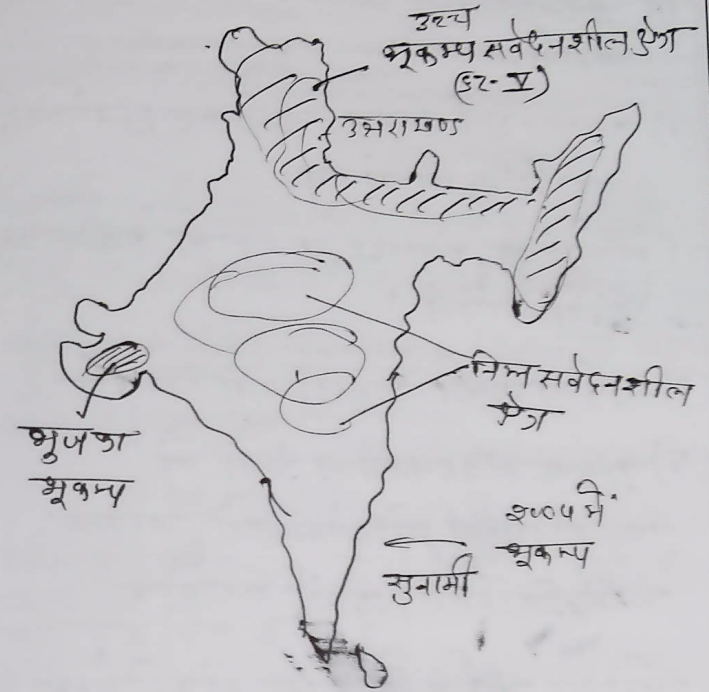 उच्च
भूकम्प संवेदनशील क्षेत्र
उत्तराखण्ड
निम्न संवेदनशील
क्षेत्र
भुज का
भूकम्प
में
भूकम्प
सुनामी